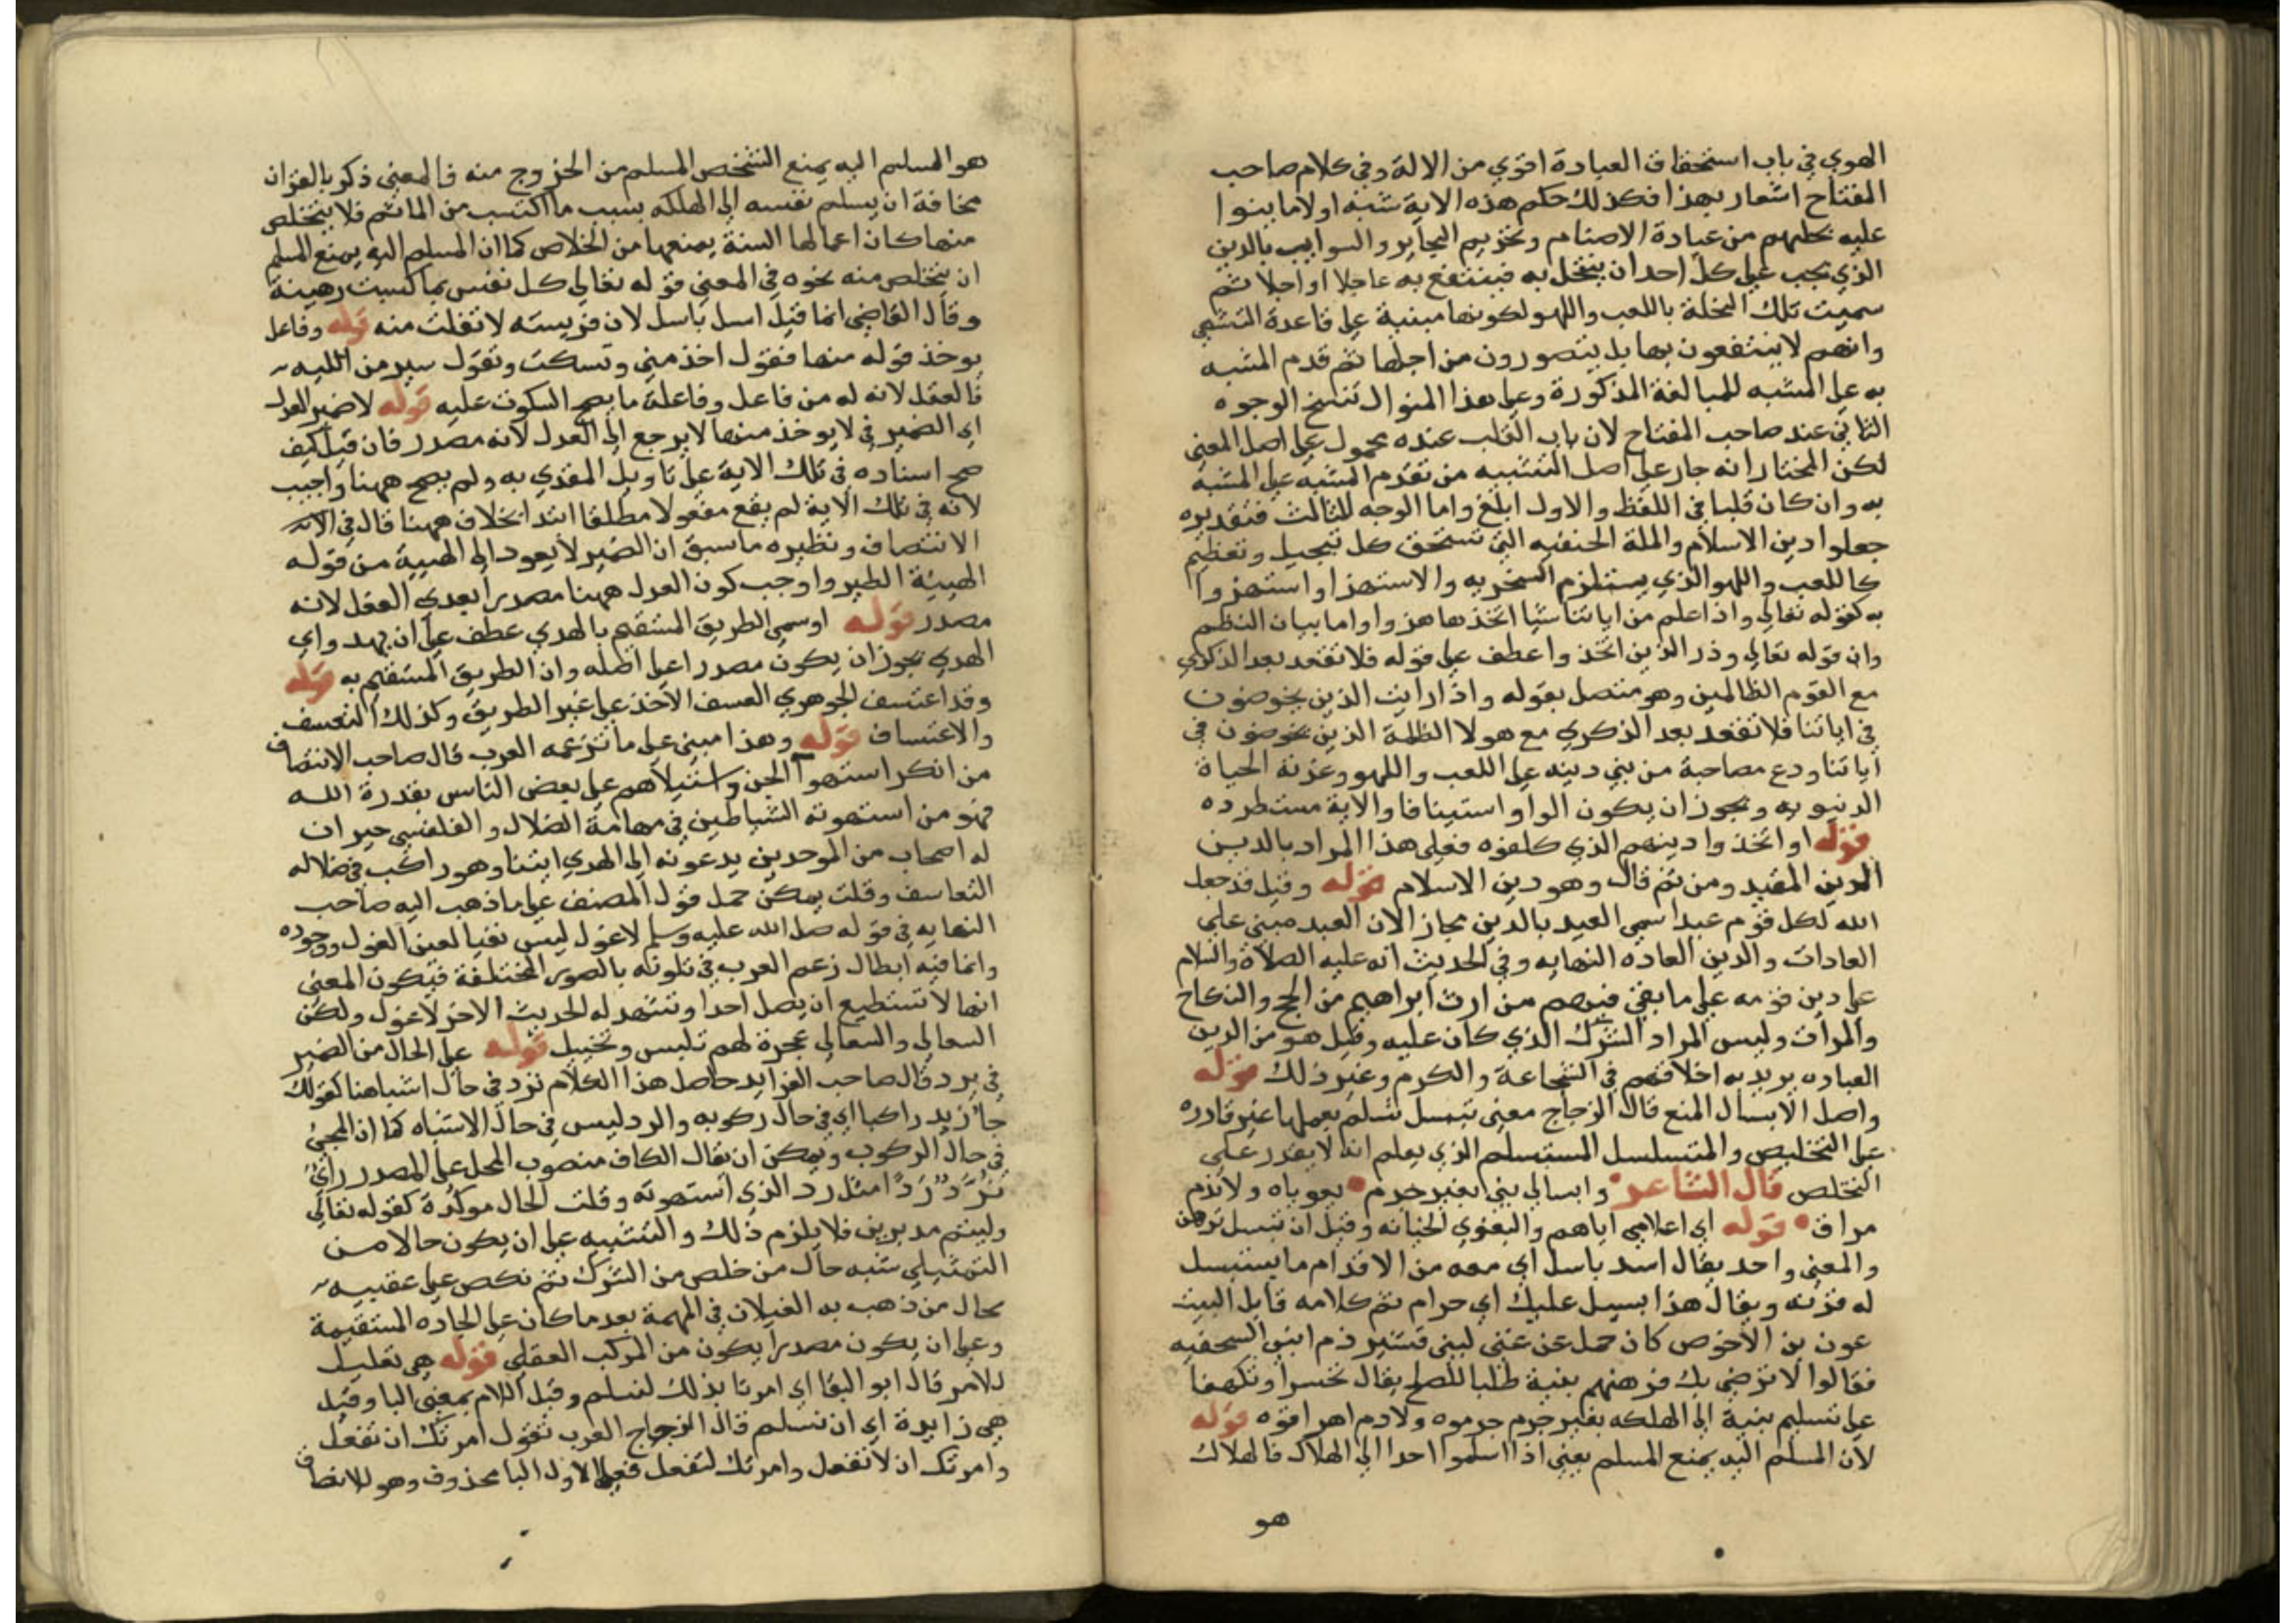 الهوي في باب استحقاق العبادة اقوي من الالة وفي كلام صاحب
المفتاح اشعار بهذا فكذلك حكم هذه الاية شبه اولا ما بنوا
عليه نحلهم من عبادة الاصنام وتحريم البحاير والسوايب بالدين
الذي يجب علي كل احد ان ينتحل به فينتفع به عاجلا او اجلا ثم
سميت تلك النحلة باللعب واللهو لكونها مبنية علي قاعدة التشهي
وانهم لا ينتفعون بها بل يتصورون من اجلها ثم قدم المشبه
به علي المشبه للمبالغة المذكورة وعلي هذا المنوال تنسخ الوجوه
الثاني عند صاحب المفتاح لان باب القلب عنده محمول علي اصل المعني
لكن المختار انه جار علي اصل التشبيه من تقدم المشبه علي المشبه
به وان كان قلبا في اللفظ والاول ابلغ واما الوجه الثالث فتقديره
جعلوا دين الاسلام والملة الحنفيه التي تستحق كل تبجيل وتعظيم
كاللعب واللهو الذي يستلزم السخريه والاستهزا واستهزوا
به كقوله تعالي واذا علم من اياتنا شيا اتخذها هزوا واما بيان النظم
وان قوله تعالي وذر الذين اتخذوا عطف علي قوله فلا تقعد بعد الذكري
مع القوم الظالمين وهو متصل بقوله واذا رايت الذين يخوضون
في اياتنا فلا تقعد بعد الذكري مع هولا الظلمة الذين يخوضون في
اياتنا ودع مصاحبة من بني دينه علي اللعب واللهو وغرته الحياة
الدنيويه ويجوز ان يكون الواو استينافا والاية مستطرده
قوله او اتخذوا دينهم الذي كلفوه فعلي هذا المراد بالدين
الدين المقيد ومن ثم قال وهو دين الاسلام قوله وقيل قد جعل
الله لكل قوم عيدا سمي العيد بالدين مجاز الان العيد مبني علي
العادات والدين العاده النهايه وفي الحديث انه عليه الصلاة والسلام
علي دين قومه علي ما بقي فيهم من ارث ابراهيم من الحج والنكاح
والمراث وليس المراد الشرك الذي كان عليه وقيل هو من الدين
العباده يريد به اخلاقهم في الشجاعة والكرم وغير ذلك قوله
واصل الابسال المنع قال الزجاج معني تبسل تسلم بعملها غير قادره
علي التخليص والمتسلسل المستسلم الذي يعلم انه لا يقدر علي
التخلص قال الشاعر وابسالي بني بغير جرم بعوناه ولا بدم
مراق قوله اي اعلامي اياهم والبعوي الجنايه وقيل ان تبسل ترهن
والمعني واحد يقال اسد باسل اي معه من الاقدام ما يستبسل
له قرنه ويقال هذا بسيل عليك اي حرام ثم كلامه قايل البيت
عون بن الاخوص كان حمل عن غني لبني قشير دم ابني السحفيه
فقالوا لا نرضي بك فرهنهم بنيه طلبا للصلح يقال تحسرا وتلهفا
علي تسليم بنيه الي الهلكه بغير جرم جرموه ولا دم اهراقوه قوله
لان المسلم اليه يمنع المسلم يعني اذا اسلموا احدا الي الهلاك فالهلاك
هو
هو المسلم اليه يمنع الشخص المسلم من الخروج منه فالمعني ذكر بالقران
مخافة ان يسلم نفسه الي الهلكه بسبب ما اكتسب من الماثم فلا يتخلص
منها كان اعمالها السنة يمنعها من الخلاص كما ان المسلم اليه يمنع المسلم
ان يتخلص منه نحوه في المعني قوله تعالي كل نفس بما كسبت رهينة
وقال القاضي انما قيل اسد باسل لان فريسته لا تفلت منه قوله وفاعل
يوخذ قوله منها فقول اخذ مني وتسكت وتقول سير من الليه
فالعقل لانه له من فاعل وفاعلة ما يصح السكوت عليه قوله لا ضمير العدل
اي الضمير في لا يوخذ منها لا يرجع الي العدل لانه مصدر فان قيل كيف
صح اسناده في تلك الاية علي تاويل المفدي به ولم يصح ههنا واجيب
لانه في تلك الاية لم يقع مفعولا مطلقا ابتدا بخلاف ههنا قال في الانـ
الانتصاف ونظيره ما سبق ان الضمير لا يعود الي الهيية من قوله
الهيئة الطير واوجب كون العدل ههنا مصدرا بعدي العقل لانه
مصدر قوله او سمي الطريق المستقيم بالهدي عطف علي ان يهدوا اي
الهدي يجوز ان يكون مصدرا علي اصله وان الطريق المستقيم به قوله
وقد اعتسف الجوهري العسف الاخذ علي غير الطريق وكذلك التعسف
والاعتساف قوله وهذا مبني علي ما تزعمه العرب قال صاحب الانتصاف
من انكر استهوا الجن واستيلاهم علي بعض الناس بقدرة الله
فهو من استهوته الشياطين في مهامة الضلال والفلفسي حيران
له اصحاب من الموحدين يدعونه الي الهدي ايتنا وهو راكب في ضلاله
التعاسف وقلت يمكن حمل قول المصنف علي ما ذهب اليه صاحب
النهايه في قوله صلي الله عليه وسلم لا غول ليس نفيا لعين الغول ووجوده
وانما فيه ابطال زعم العرب في تلونه بالصور المختلفة فيكون المعني
انها لا تستطيع ان يضل احدا وتشهد له الحديث الاخر لا غول ولكن
السعالي والسعالي سحرة لهم تلبس وتخييل قوله علي الحال من الضمير
في يرد قال صاحب الفرايد حاصل هذا الكلام نرد في حال اشباهنا كقولك
جا زيد راكبا اي في حال ركوبه والرد ليس في حال الاشتباه كما ان المجيئ
في حال الركوب ويمكن ان تقال الكاف منصوب المحل علي المصدر راي
نرد ردا مثل رد الذي استهوته وقلت الحال موكدة كقوله تعالي
وليتم مدبرين فلا يلزم ذلك والتشبيه علي ان يكون حالا من
التمثيلي شبه حال من خلص من الشرك ثم نكص علي عقبيه
بحال من ذهب به الغيلان في المهمة بعد ما كان علي الجاده المستقيمة
وعلي ان يكون مصدرا يكون من المركب العقلي قوله هي تعليل
للامر قال ابو البقا اي امرنا بذلك لنسلم وقيل اللام بمعني البا وقيل
هي زايدة اي ان نسلم قال الزجاج العرب تقول امرتك ان تفعل
وامرتك ان لا تفعل وامرتك لتفعل فعلي الاول البا محذوف وهو للالصاق